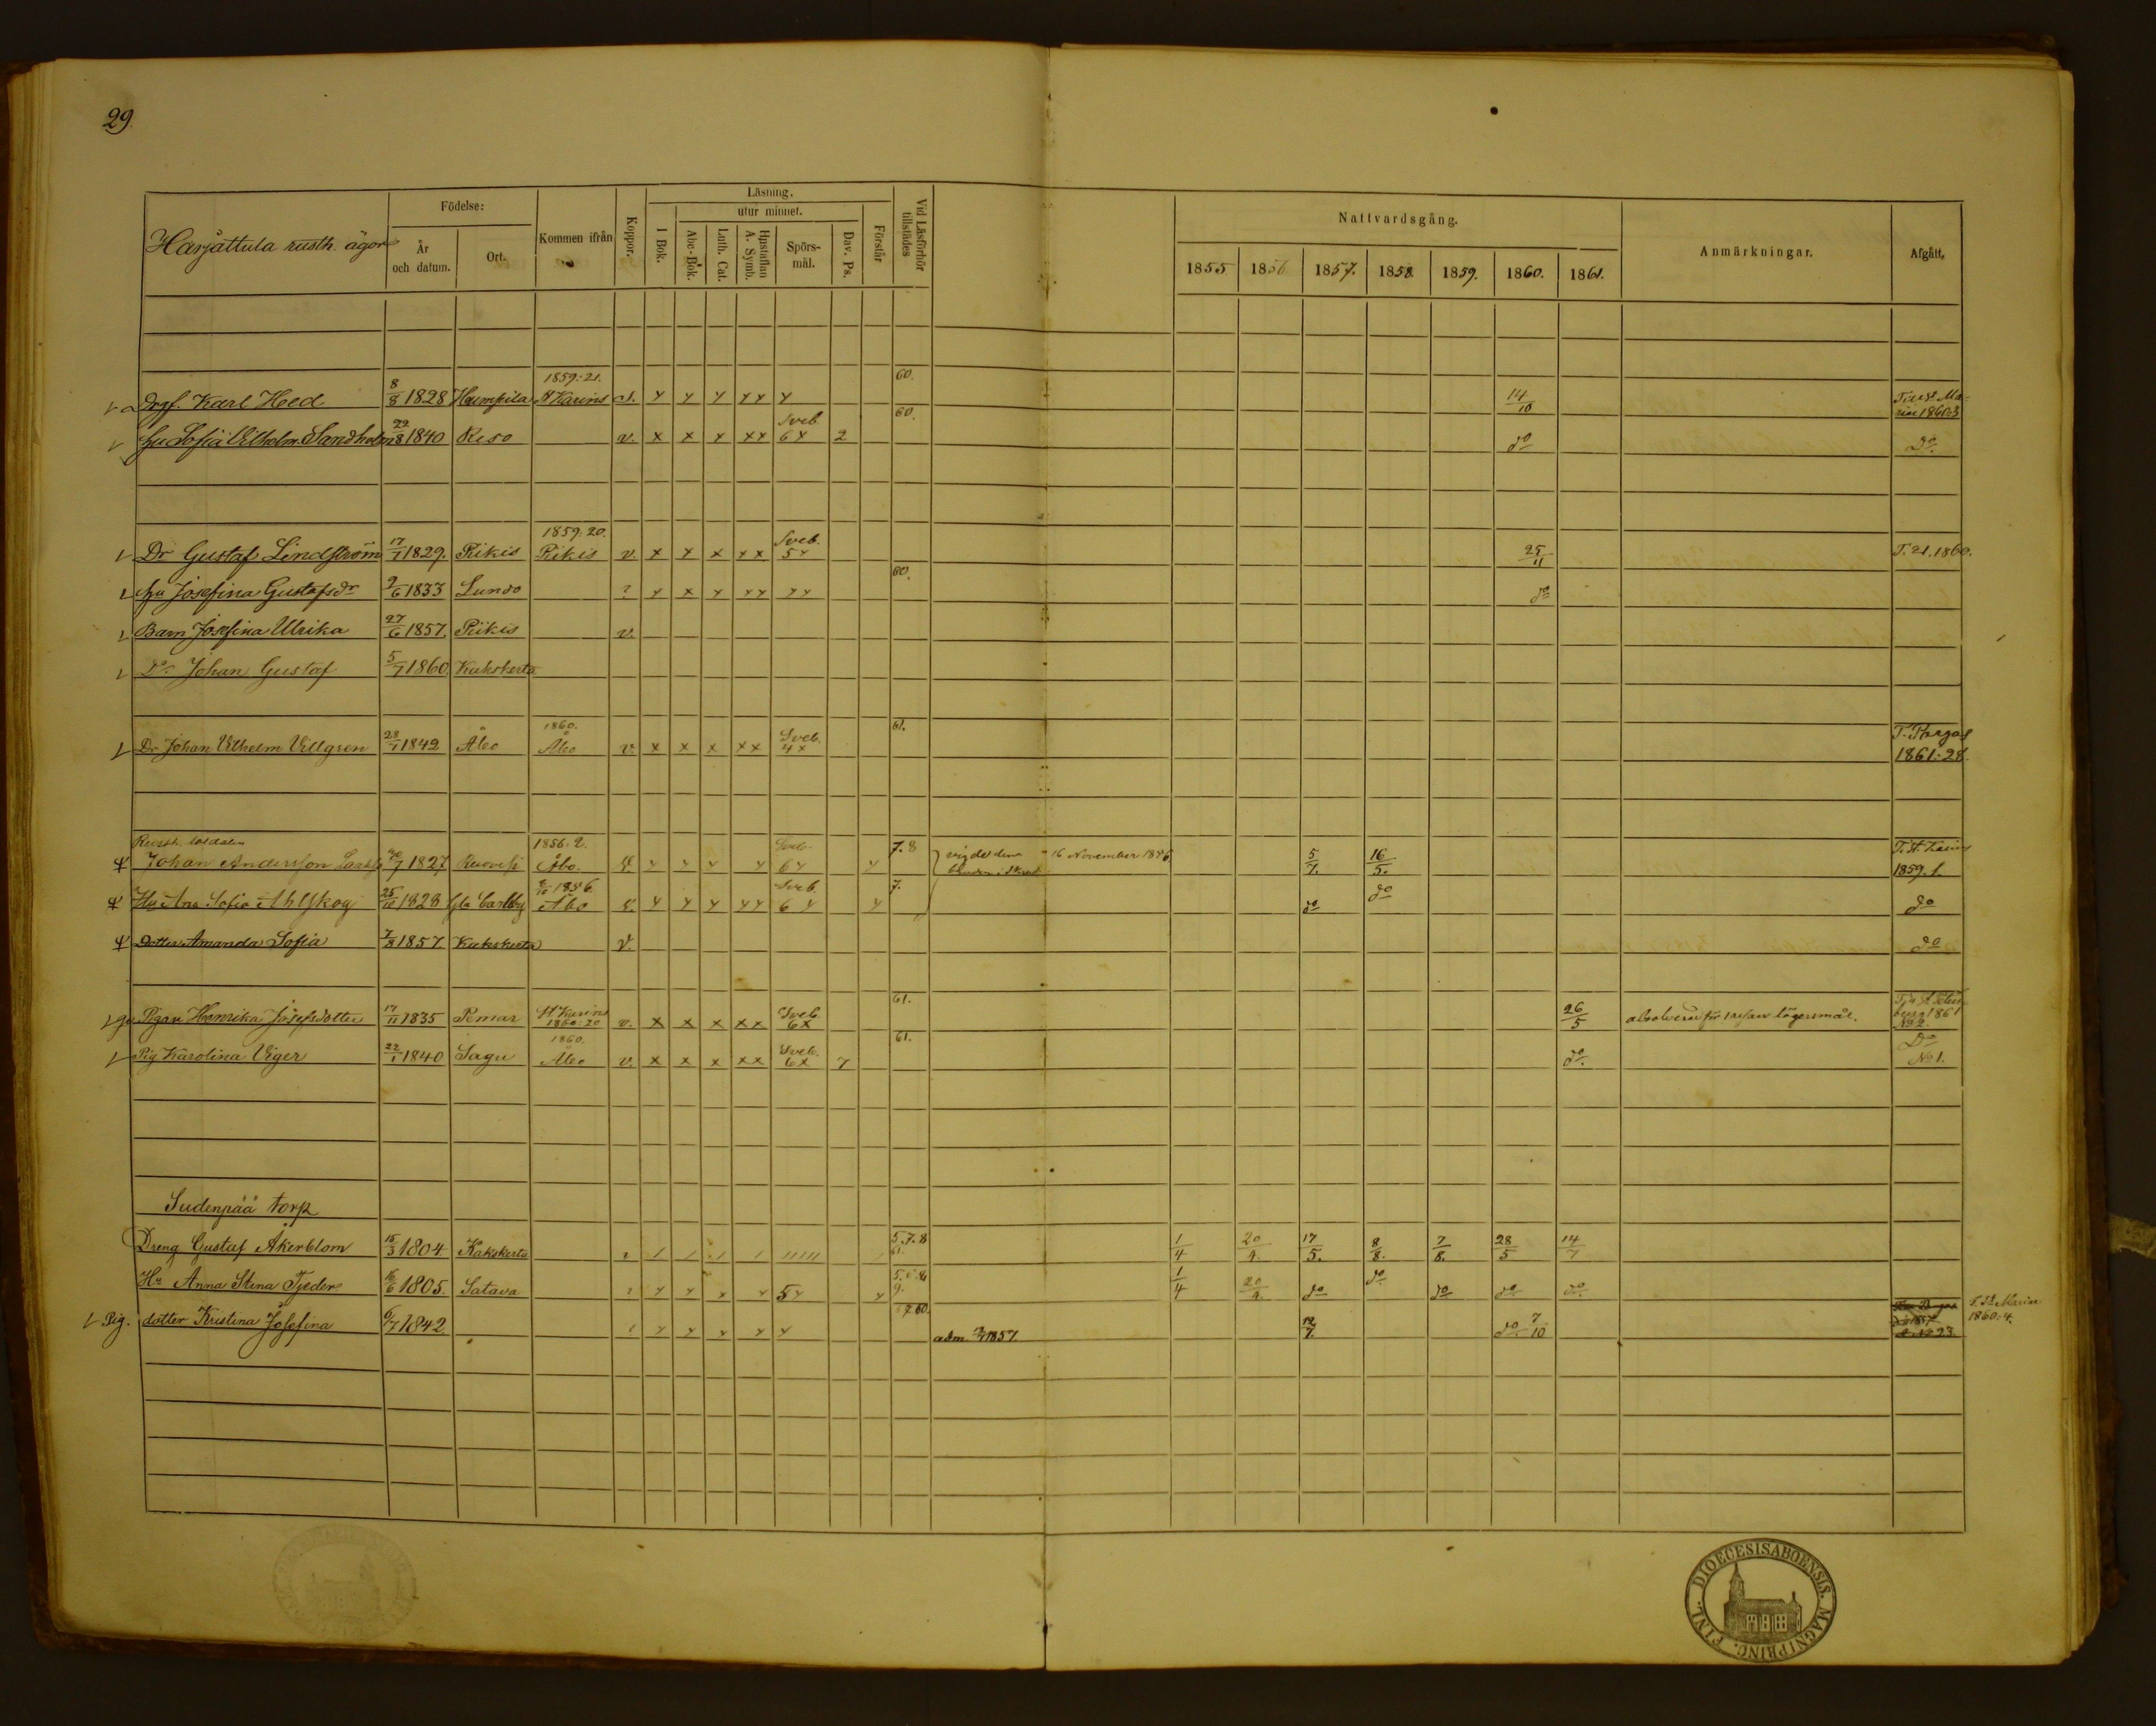 29.
Harjattula rusth. ägor
Födelse:
År och datum.
Ort.
Kommen ifrån
Koppor.
Läsning.
I Bok.
utur minnet.
Abc-Bok.
Luth. Cat.
Hustaflan A. Symb.
Spörs-mål.
Dav. Ps.
Förstår
Vid Läsförhör tillstädes
Nattvardsgång.
1855 1856 1857. 1858. 1859. 1860. 1861.
Anmärkningar.
Afgått.
1859:21. 60.
Drgf. Karl Heed 8/8 1828 Humpila St Karins x x x xx x 14/10 1860:3
Sveb. 60.
Hu Sofia Vilhelm. Sandholm 22/8 1840 Reso v. x x x xx 6x 2 do Do
1859:20. Sveb.
Dr Gustaf Lindström 17/7 1829. Piikis Piikis v. x x x xx 5x 25/11 T. 21. 1860.
60.
Hu Josefina Gustafsdr 2/6 1833 Lundo ? x x x xx xx do
Barn Josefina Ulrika 27/6 1857. Piikis v.
Do Johan Gustaf 5/7 1860. Kakskerta
1860. Sveb. 61. T. Pargas
Dr Johan Vilhelm Villgren 28/1 1842 Åbo Åbo v. x x x xx 4x 1861:28.
Rusth. soldaten 1856.2. Sveb. 7.8 T. St. Karins
Johan Andersson 1827 Ruovesi Åbo. x x x x 6x x vigde den 16 November 1856 5/7. 16/5. 1859. 1.
1856. Sveb. 7.
Hu Ana Sofia Ahlskog 25/10 1828 Gla Carleby Åbo x x x xx 6x x do do do
Dotter Amanda Sofia 7/8 1857. Kakskerta v. do
61.
Pigan Henrika Josefsdotter 17/11 1835 Pemar St Karins 1860:20 v. x x x xx Sveb. 6x 26/5 absolverad för 1 resan lägersmål. 1861 No 2.
1860. 61. Do
Pig Karolina Viger 22/1 1840 Sagu Åbo v. x x x xx Sveb. 6x 7 do. No 1.
Sudenpää torp
Dreng Gustaf Åkerblom 15/3 1804 Kakskerta 5.7.8 61. 1/4 20/4. 17/5. 8/8. 7/8. 28/5 14/7
Hu Anna Stina Tjeder 16/6 1805. Satava x x x x 5x x 9. 1/4 20/4. do do do do do.
Pig. dotter Kristina Josefina 6/7 1842. x x x x x 7.60. adm. 1857. 12/7. do 7/10 T. St Marie 1860:4.
FINL. DIOECESIS ABOENSIS. MAGNI PRINC.